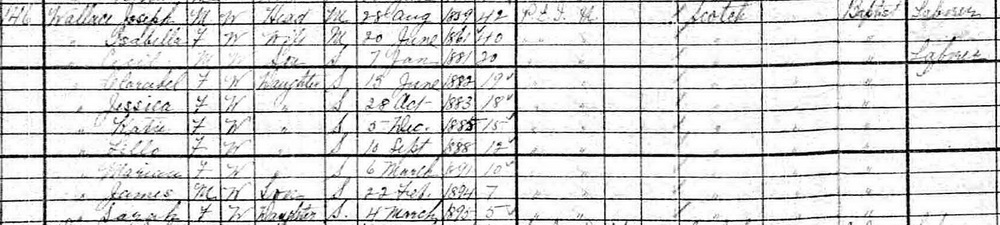 46 Wallace Joseph M W Head M 28 Aug 1859 42 P.E.I. Scotch Baptist Laborer
" Isabella F W Wife M 20 June 1861 40 " " "
" M W Son S 7 Jan 1881 20 " " " Laborer
" Claribel F W Daughter S 15 June 1882 19 " " "
" Jessica F W " S 28 Oct 1883 18 " " "
" Katie F W " S 5 Dec. 1885 15 " " "
" F W " S 10 Sept 1888 12 " " "
" F W " S 6 March 1891 10 " " "
" James M W Son S 22 Feb. 1894 7 " " "
" Sarah F W Daughter S. 4 March 1895 5 " " "